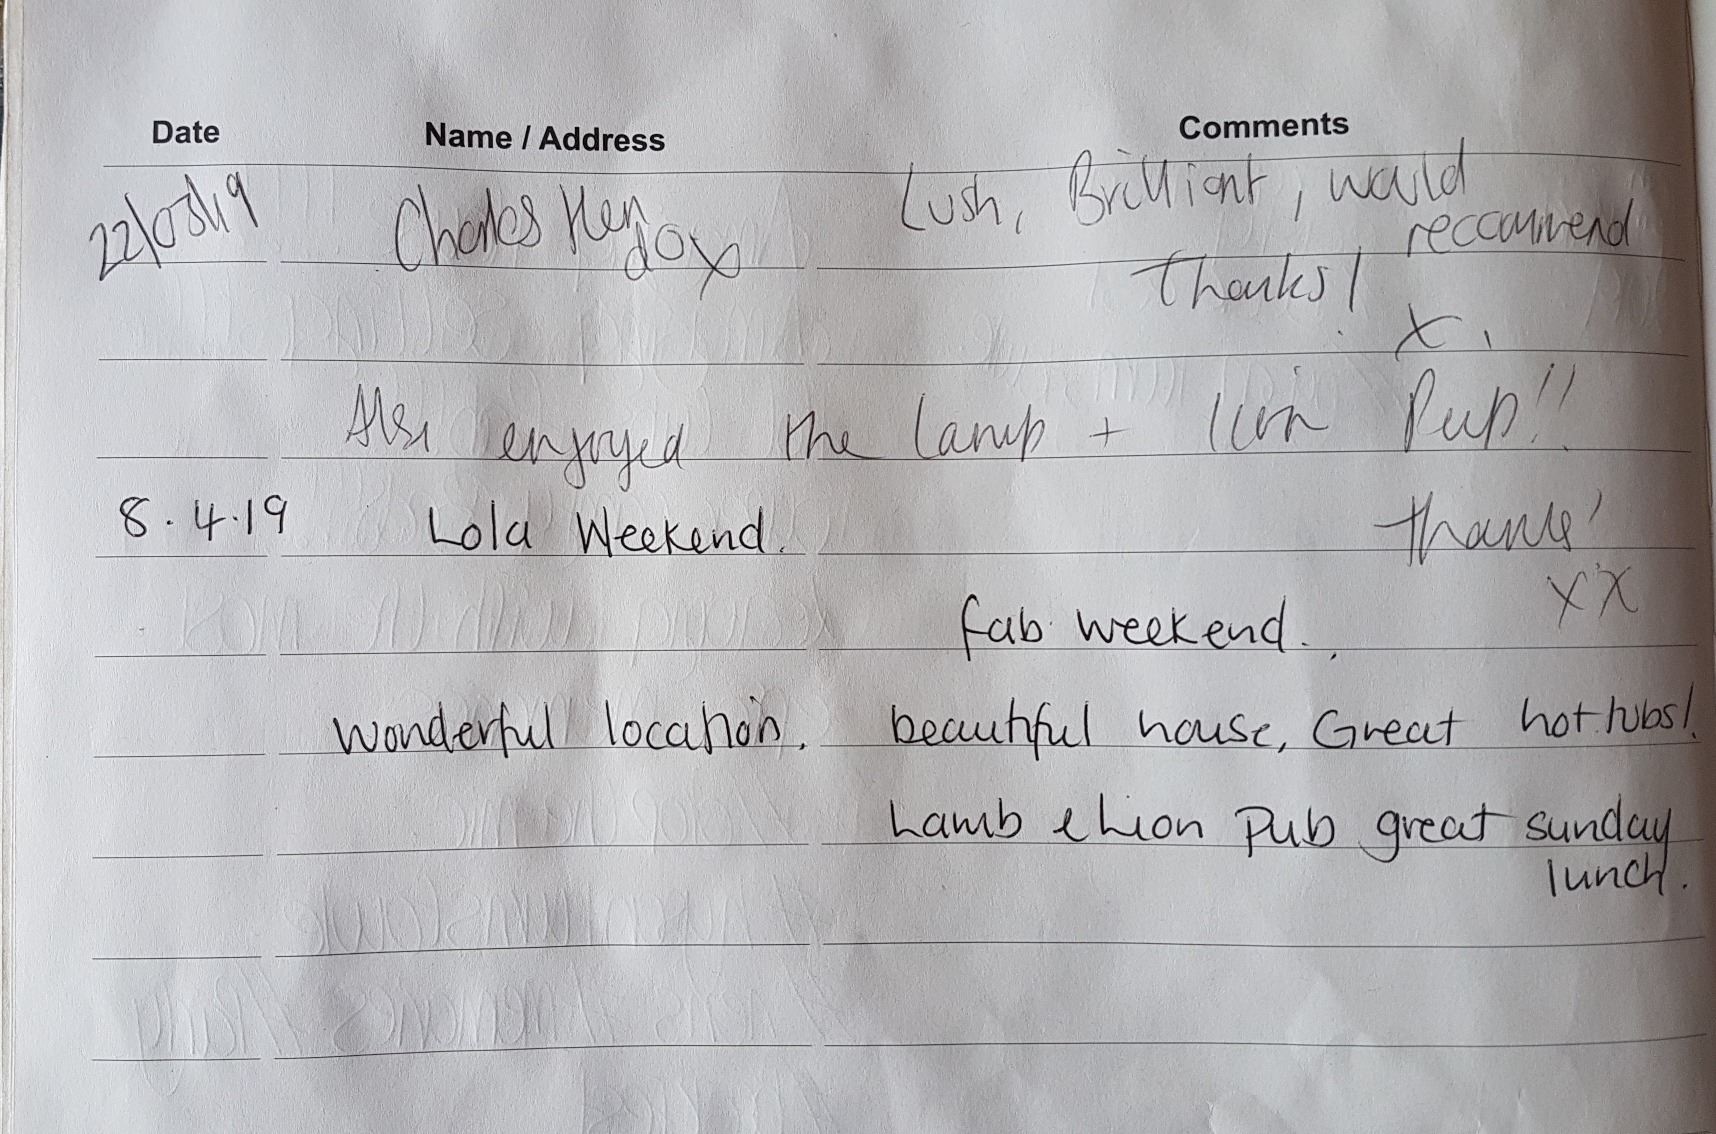 Date Name / Address Comments
22/03/19 Charles Hen Lush, Brilliant, would
dox recommend
Thanks!
x
Also enjoyed the Lamp + lion Pup!!
8.4.19 Lola Weekend. Thanks!
xx
fab weekend.
Wonderful location. beautiful house, Great hot tubs!
Lamb & Lion Pub great sunday
lunch.